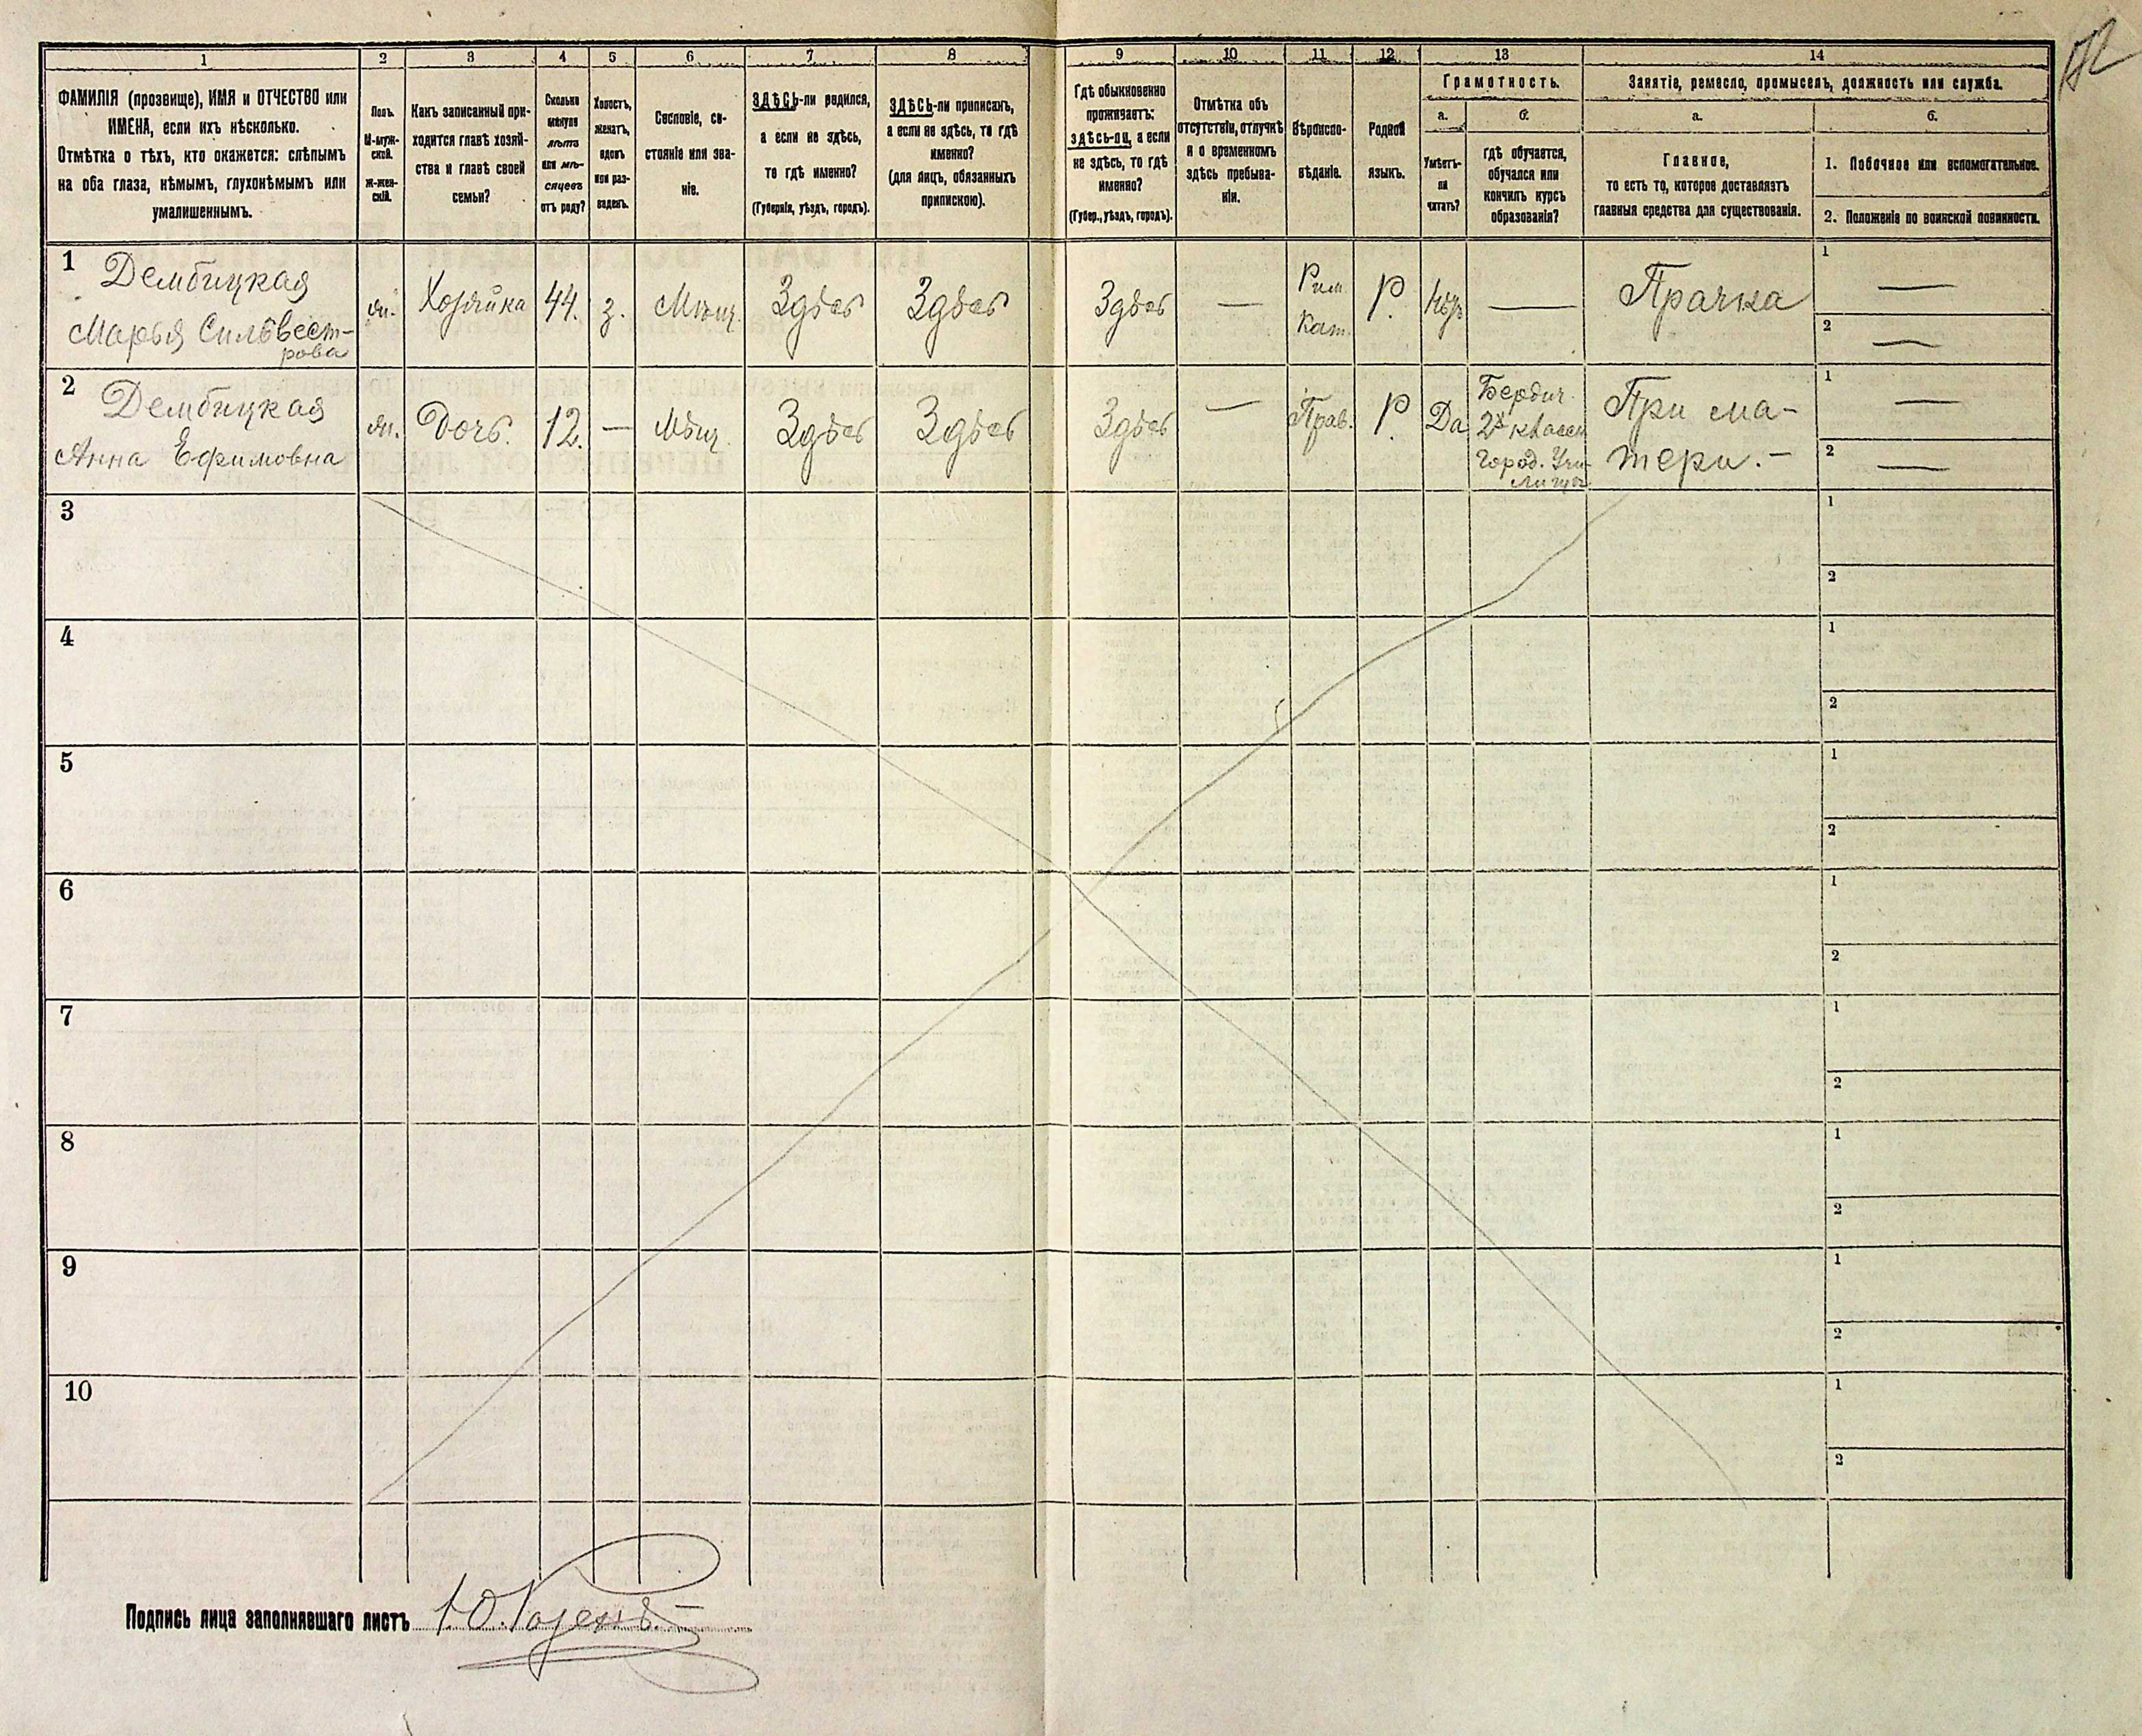 172
1
2
3
4
5
6
7
8
9
10
11
12
13
14
ФАМИЛІЯ (прозвище), ИМЯ и ОТЧЕСТВО или
ИМЕНА, если ихъ нѣсколько.
Отмѣтка о тѣхъ, кто окажется: слѣпымъ
на оба глаза, нѣмымъ, глухонѣмымъ или
умалишеннымъ.
Полъ.
М-муж-
ской.
Ж-жен-
скій.
Какъ записанный при-
ходится главѣ хозяй-
ства и главѣ своей
семьи?
Сколько
минуло
лѣтъ
или мѣ-
сяцевъ
отъ роду?
Холостъ,
женатъ,
вдовъ
или раз-
веденъ.
Сословіе, со-
стояніе или зва-
ніе.
ЗДѢСЬ-ли родился,
а если не здѣсь,
то гдѣ именно?
(Губернія, уѣздъ, городъ).
ЗДѢСЬ-ли приписанъ,
а если не здѣсь, то гдѣ
именно?
(для лицъ, обязанныхъ
припискою).
Гдѣ обыкновенно
проживаетъ:
здѣсь-ли, а если
не здѣсь, то гдѣ
именно?
(Губер., уѣздъ, городъ).
Отмѣтка объ
отсутствіи, отлучкѣ
и о временномъ
здѣсь пребыва-
ніи.
Вѣроиспо-
вѣданіе.
Родной
языкъ.
Грамотность.
а.
Умѣетъ-
ли
читать?
б.
гдѣ обучается,
обучался или
кончилъ курсъ
образованія?
Занятіе, ремесло, промыселъ, должность или служба.
а.
Главное,
то есть то, которое доставляетъ
главныя средства для существованія.
б.
1. Побочное или вспомогательное.
2. Положеніе по воинской повинности.
1
Дембицкая
Марья Сильвест-
рова
ж.
Хозяйка
44.
з.
Мѣщ.
Здѣсь
Здѣсь
Здѣсь
—
Рим.
Кат.
Р.
Нѣтъ
—
Прачка
1 —
2 —
2
Дембицкая
Анна Ефимовна
ж.
Дочь.
12.
—
Мѣщ.
Здѣсь
Здѣсь
Здѣсь
—
Прав.
Р.
Да
Бердич.
2х класси
Город. Учи-
лищѣ
При ма-
тери. -
1 —
2 —
3
1
2
4
1
2
5
1
2
6
1
2
7
1
2
8
1
2
9
1
2
10
1
2
Подпись лица заполнявшаго листъ